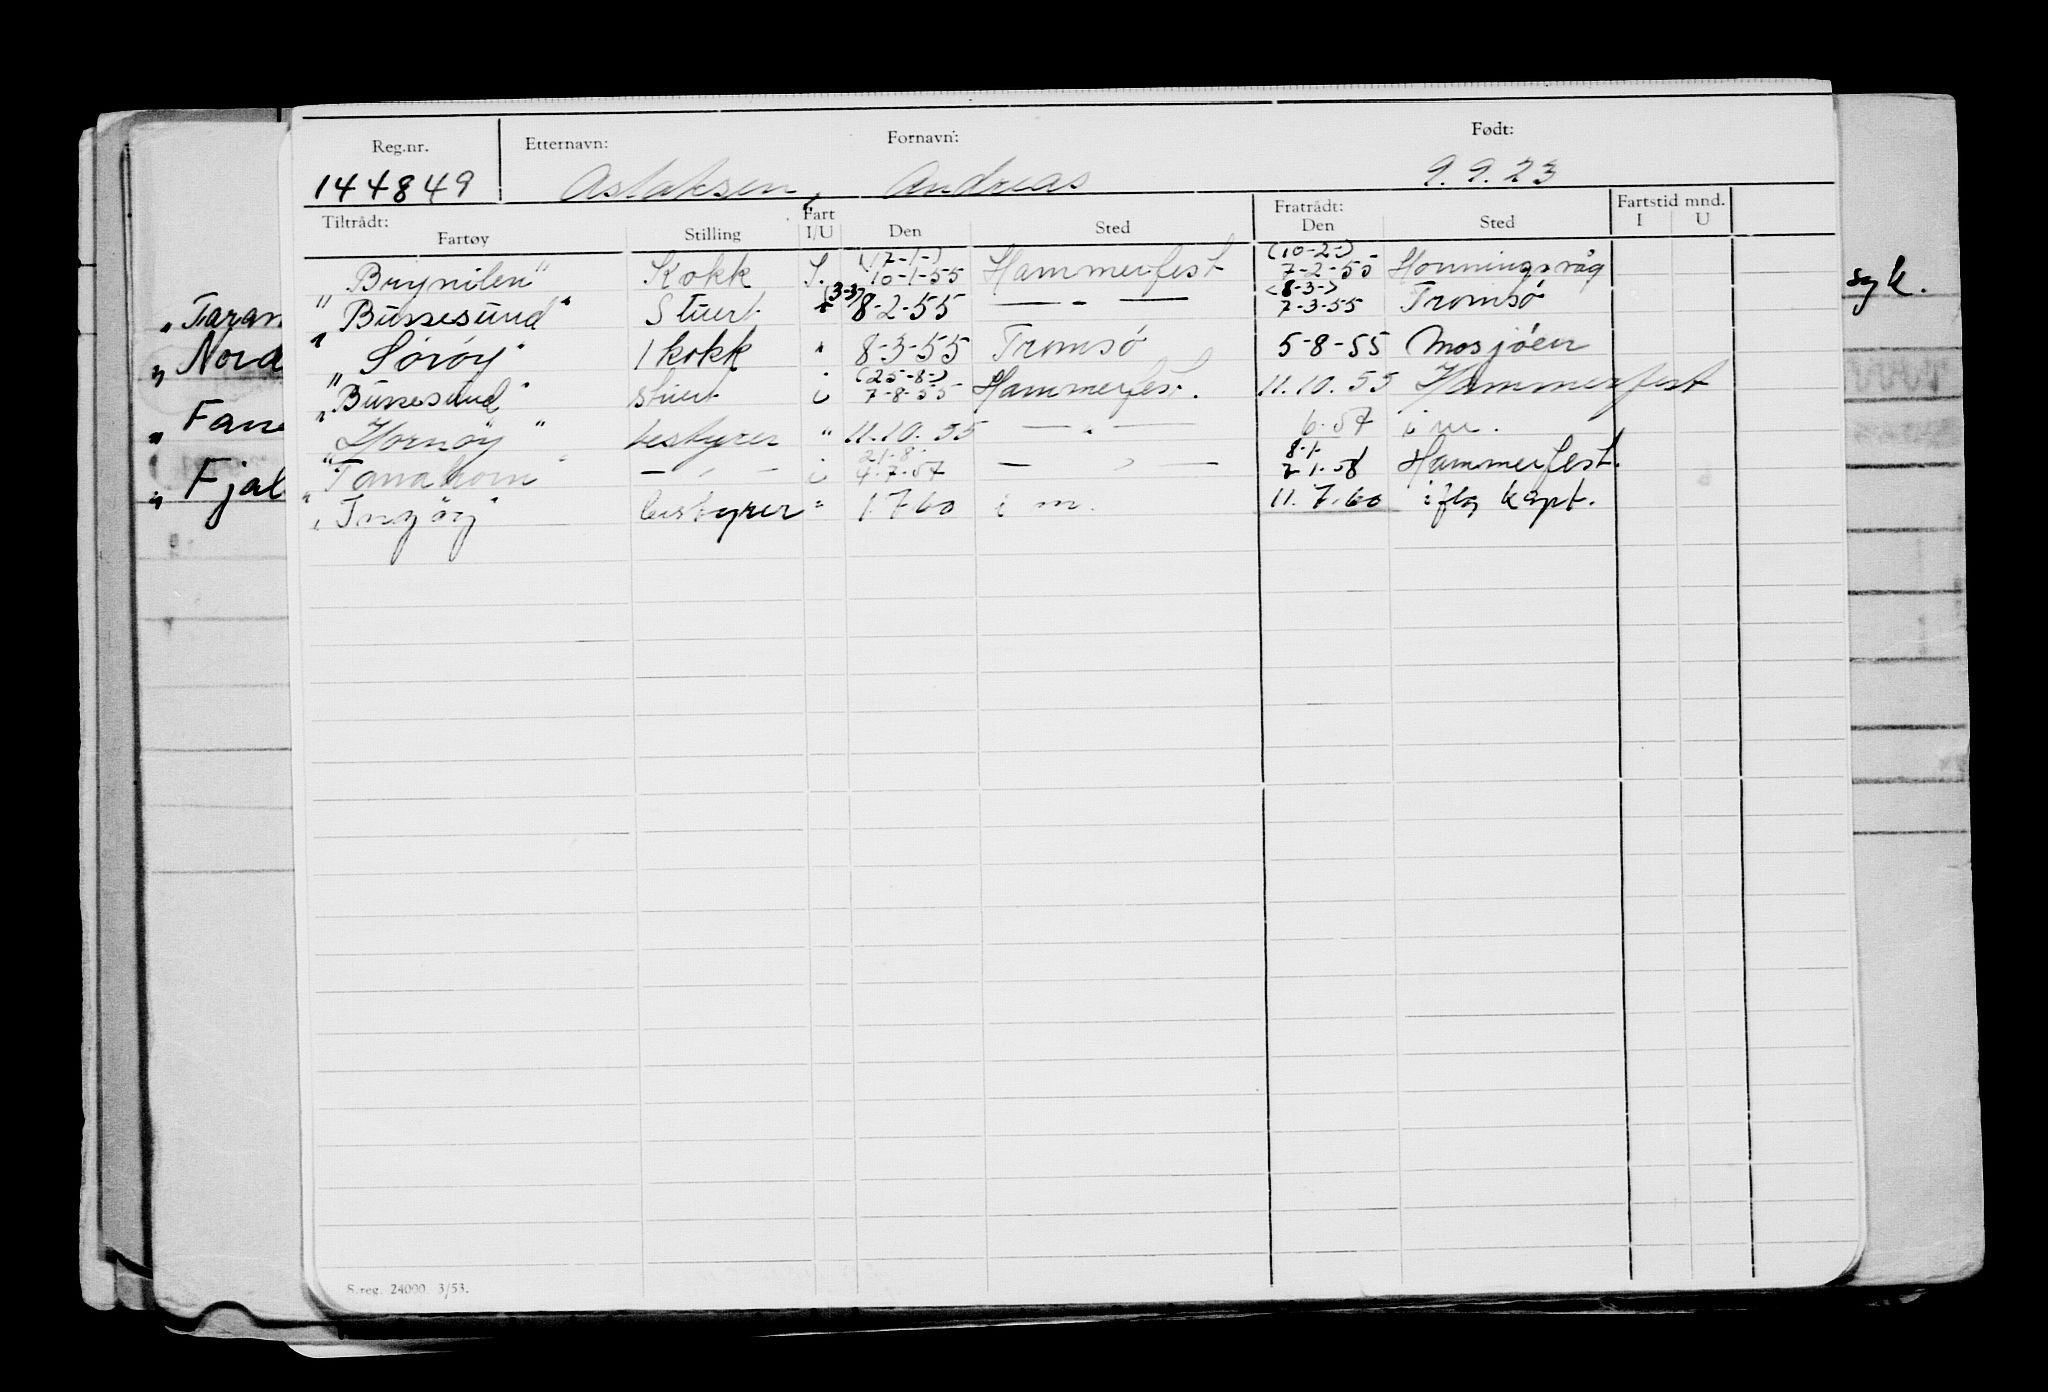 Reg.nr. Etternavn: Fornavn: Født:
144849 Aslaksen, Andreas 9.9.23
Tiltrådt: Fartøy Stilling Fart I/U Den Sted Fratrådt: Den Sted Fartstid mnd. I U
(17-1-) (10-2-)
"Brynilen" Kokk I. 10-1-55 Hammerfest 7-2-55 Honningsvåg
(3-3) (8-3-)
"Bussesund" Stuert " 8-2-55 — " — 7-3-55 Tromsø
"Sørøy" 1 kokk " 8-3-55 Tromsø 5-8-55 Mosjøen
(25-8-)
"Bussesund" stuert i 7-8-55 Hammerfest. 11.10.55 Hammerfest
"Hornøy" bestyrer " 11.10.55 — " — 6.57 i m.
21.8. 8.1.
"Tanahorn" — " — i 4.7.57 — " — 21.58 Hammerfest.
"Ingøy" bestyrer " 1.7.60 i m. 11.7.60 iflg kapt.
S.reg. 24000. 3/53.
"Taran
"Nord
"Fjal
syk.